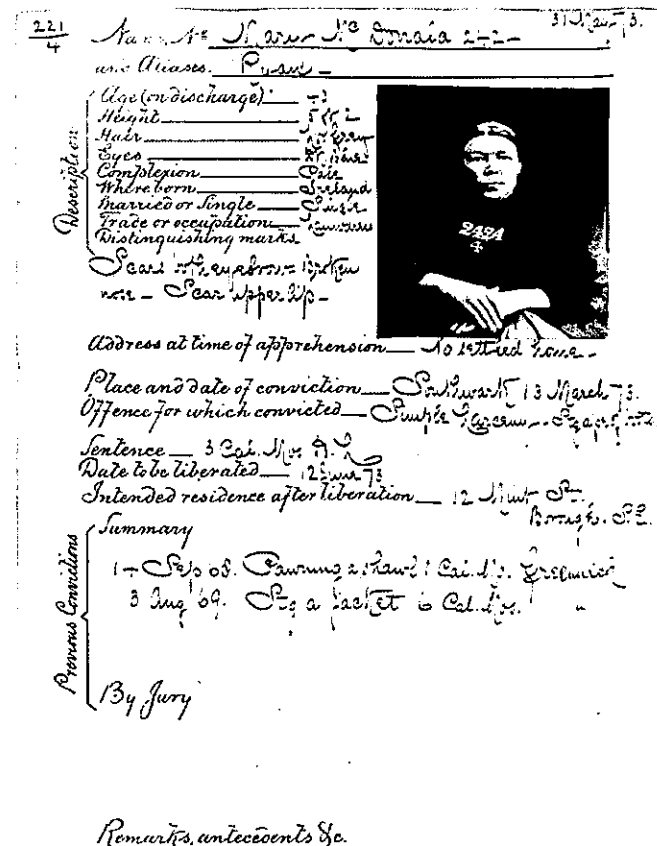 221
4
31 Mar 73.
Name No Mary Mc Donald 242
and Aliases. Ryan
Description
Age (on discharge)
Height 5 ft 2
Hair
Eyes
Complexion Pale
Where born Ireland
Married or Single Single
Trade or occupation Laundress
Distinguishing marks
Scars eyebrow Broken
nose - Scar upper lip -
242A
4
Address at time of apprehension No settled home -
Place and date of conviction Southwark 13 March 73.
Offence for which convicted Simple Larceny
Sentence 3 Cal. Mos H. L
Date to be liberated 12 June 73
Intended residence after liberation 12 Mint St.
Borough. S.E.
Previous Convictions
Summary
Sep 68. Pawning a shawl 1 Cal. Mo. Greenwich
3 Aug 69. Stg a Jacket 6 Cal. Mos. "
By Jury
Remarks, antecedents &c.